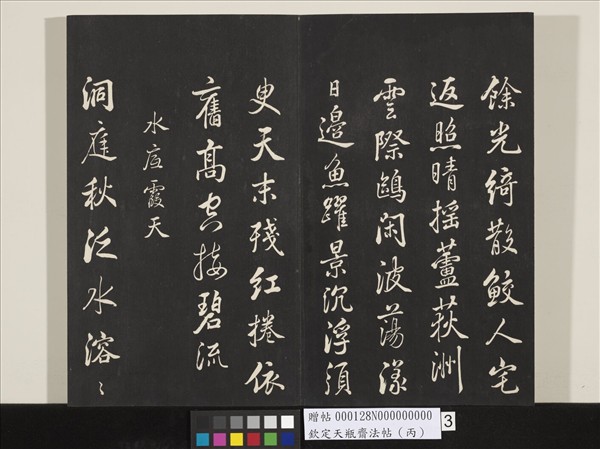 餘光綺散鮫人宅
返照晴搖蘆荻洲
雲際鷗閑波蕩漾
日邊魚躍景沉浮須
臾天末殘紅捲依
舊高空接碧流
水底霞天
洞庭秋泛水溶〻
贈帖 000128N000000000
欽定天瓶齋法帖(丙)
3